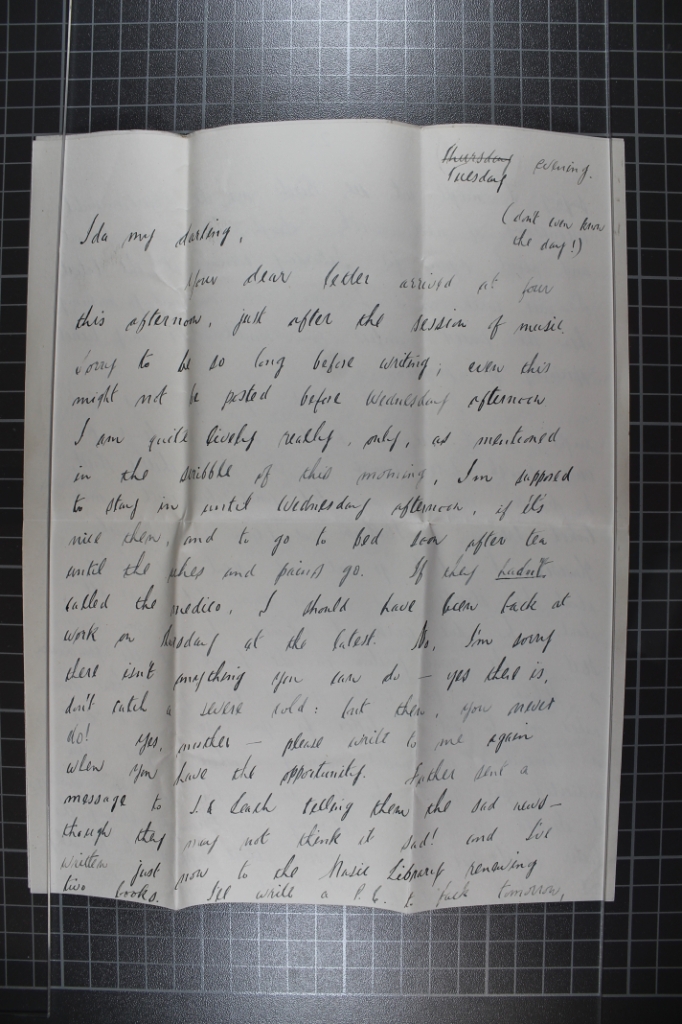 Thursday evening.
Tuesday
(don't even know
the day!)
Ida my darling,
Your dear letter arrived at four
this afternoon, just after the session of music.
Sorry to be so long before writing; even this
might not be posted before Wednesday afternoon
I am quite lively really, only, as mentioned
in the scribble of this morning, I'm supposed
to stay in until Wednesday afternoon, if it's
nice then, and to go to bed soon after ten
until the aches and pains go. If they hadn't
called the medico, I should have been back at
work on Thursday at the latest. No, I'm sorry
there isn't anything you can do — yes there is,
don't catch a severe cold: but then, you never
do! Yes, mother — please write to me again
when you have the opportunity. Father sent a
message to telling them the sad news —
though they may not think it sad! and I've
written just now to the Music Library renewing
two books. I'll write a P.C. to tomorrow,